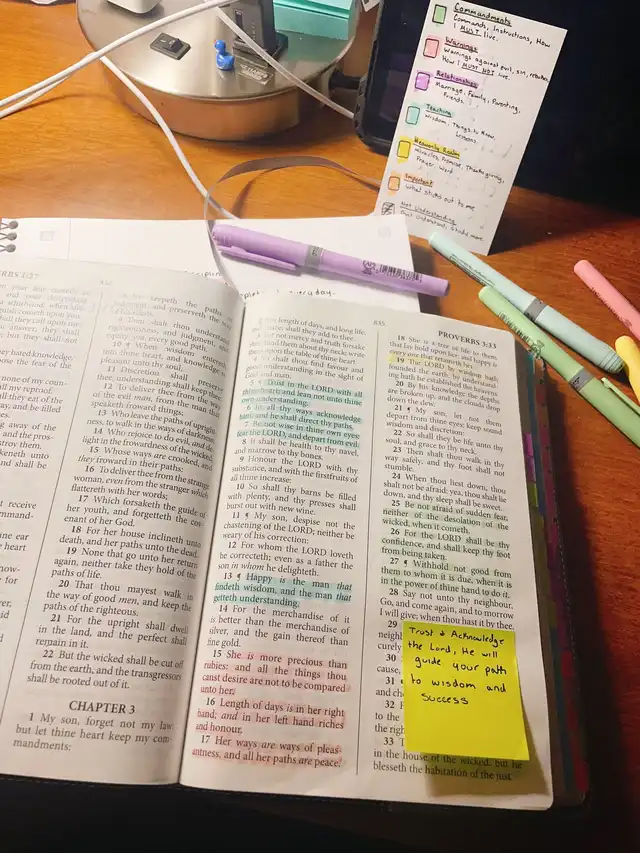 Commandments
Commands, Instructions, How
I MUST live.
Warnings
Warnings against evil, sin, rebukes,
How I MUST NOT live.
Relationships
Marriage, Family, Parenting,
Friends
Teaching
Wisdom, Things to Know,
Lessons
Heavenly Realm
Miracles, Promise, Thanksgiving,
Prayer, Word
Important
What sticks out to me
Not Understanding
Don't Understand, Study more
everyday.
PROVERBS 1:27
keepeth the paths of
10 When wisdom entereth
into thine heart, and knowledge is
pleasant unto thy soul;
11 Discretion shall preserve
thee, understanding shall keep thee:
12 To deliver thee from the way of
the evil man, from the man that
speaketh froward things;
13 Who leave the paths of upright-
ness, to walk in the ways of darkness;
14 Who rejoice to do evil, and de-
light in the frowardness of the wicked;
15 Whose ways are crooked, and
they froward in their paths:
16 To deliver thee from the strange
woman, even from the stranger which
flattereth with her words;
17 Which forsaketh the guide of
her youth, and forgetteth the cov-
enant of her God.
18 For her house inclineth unto
death, and her paths unto the dead.
19 None that go unto her return
again, neither take they hold of the
paths of life.
20 That thou mayest walk in
the way of good men, and keep the
paths of the righteous.
21 For the upright shall dwell
in the land, and the perfect shall
remain in it.
22 But the wicked shall be cut off
from the earth, and the transgressors
shall be rooted out of it.
CHAPTER 3
1 My son, forget not my law;
but let thine heart keep my com-
mandments:
835
PROVERBS 3:33
2 For length of days, and long life,
and peace, shall they add to thee.
3 Let not mercy and truth forsake
thee: bind them about thy neck; write
them upon the table of thine heart:
4 So shalt thou find favour and
good understanding in the sight of
God and man.
5 ¶ Trust in the LORD with all
thine heart; and lean not unto thine
own understanding.
6 In all thy ways acknowledge
him, and he shall direct thy paths.
7 Be not wise in thine own eyes:
fear the LORD, and depart from evil.
8 It shall be health to thy navel,
and marrow to thy bones.
9 Honour the LORD with thy
substance, and with the firstfruits of
all thine increase:
10 So shall thy barns be filled
with plenty, and thy presses shall
burst out with new wine.
11 ¶ My son, despise not the
chastening of the LORD; neither be
weary of his correction:
12 For whom the LORD loveth
he correcteth; even as a father the
son in whom he delighteth.
13 ¶ Happy is the man that
findeth wisdom, and the man that
getteth understanding.
14 For the merchandise of it
is better than the merchandise of
silver, and the gain thereof than
fine gold.
15 She is more precious than
rubies: and all the things thou
canst desire are not to be compared
unto her.
16 Length of days is in her right
hand; and in her left hand riches
and honour.
17 Her ways are ways of pleas-
antness, and all her paths are peace.
18 She is a tree of life to them
that lay hold upon her: and happy is
every one that retaineth her.
19 The LORD by wisdom hath
founded the earth; by understand-
ing hath he established the heavens.
20 By his knowledge the depths
are broken up, and the clouds drop
down the dew.
21 ¶ My son, let not them
depart from thine eyes: keep sound
wisdom and discretion:
22 So shall they be life unto thy
soul, and grace to thy neck.
23 Then shalt thou walk in thy
way safely, and thy foot shall not
stumble.
24 When thou liest down, thou
shalt not be afraid: yea, thou shalt lie
down, and thy sleep shall be sweet.
25 Be not afraid of sudden fear,
neither of the desolation of the
wicked, when it cometh.
26 For the LORD shall be thy
confidence, and shall keep thy foot
from being taken.
27 ¶ Withhold not good from
them to whom it is due, when it is
in the power of thine hand to do it.
28 Say not unto thy neighbour,
Go, and come again, and to morrow
I will give; when thou hast it by thee.
29
30
31
32
33
in the house of the wicked: but he
blesseth the habitation of the just.
Trust & Acknowledge
the Lord, He will
guide your path
to wisdom and
success